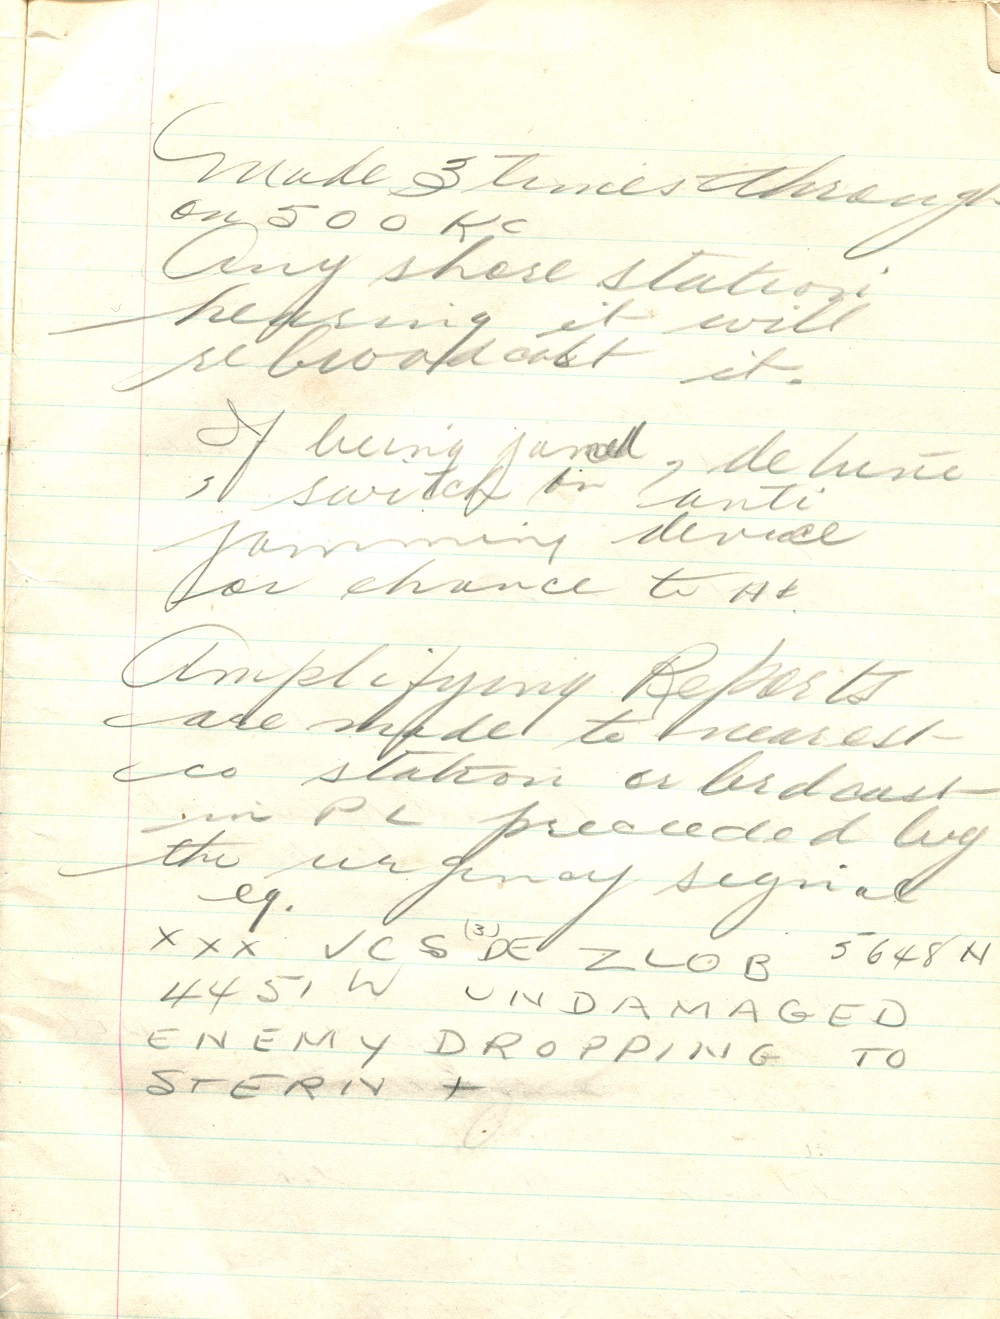 Made 3 times through
on 500 Kc
Any shore station
hearing it will
rebroadcast it.
If being jamed, detune
, switch in anti
jamming device
or chance to Hf.
Amplifying Reports
are made to nearest
co station or brdcast
in PL preceeded by
the urgency signal
eg.
XXX VCS (3) DE ZLOB 5648N
4451W UNDAMAGED
ENEMY DROPPING TO
STERN +